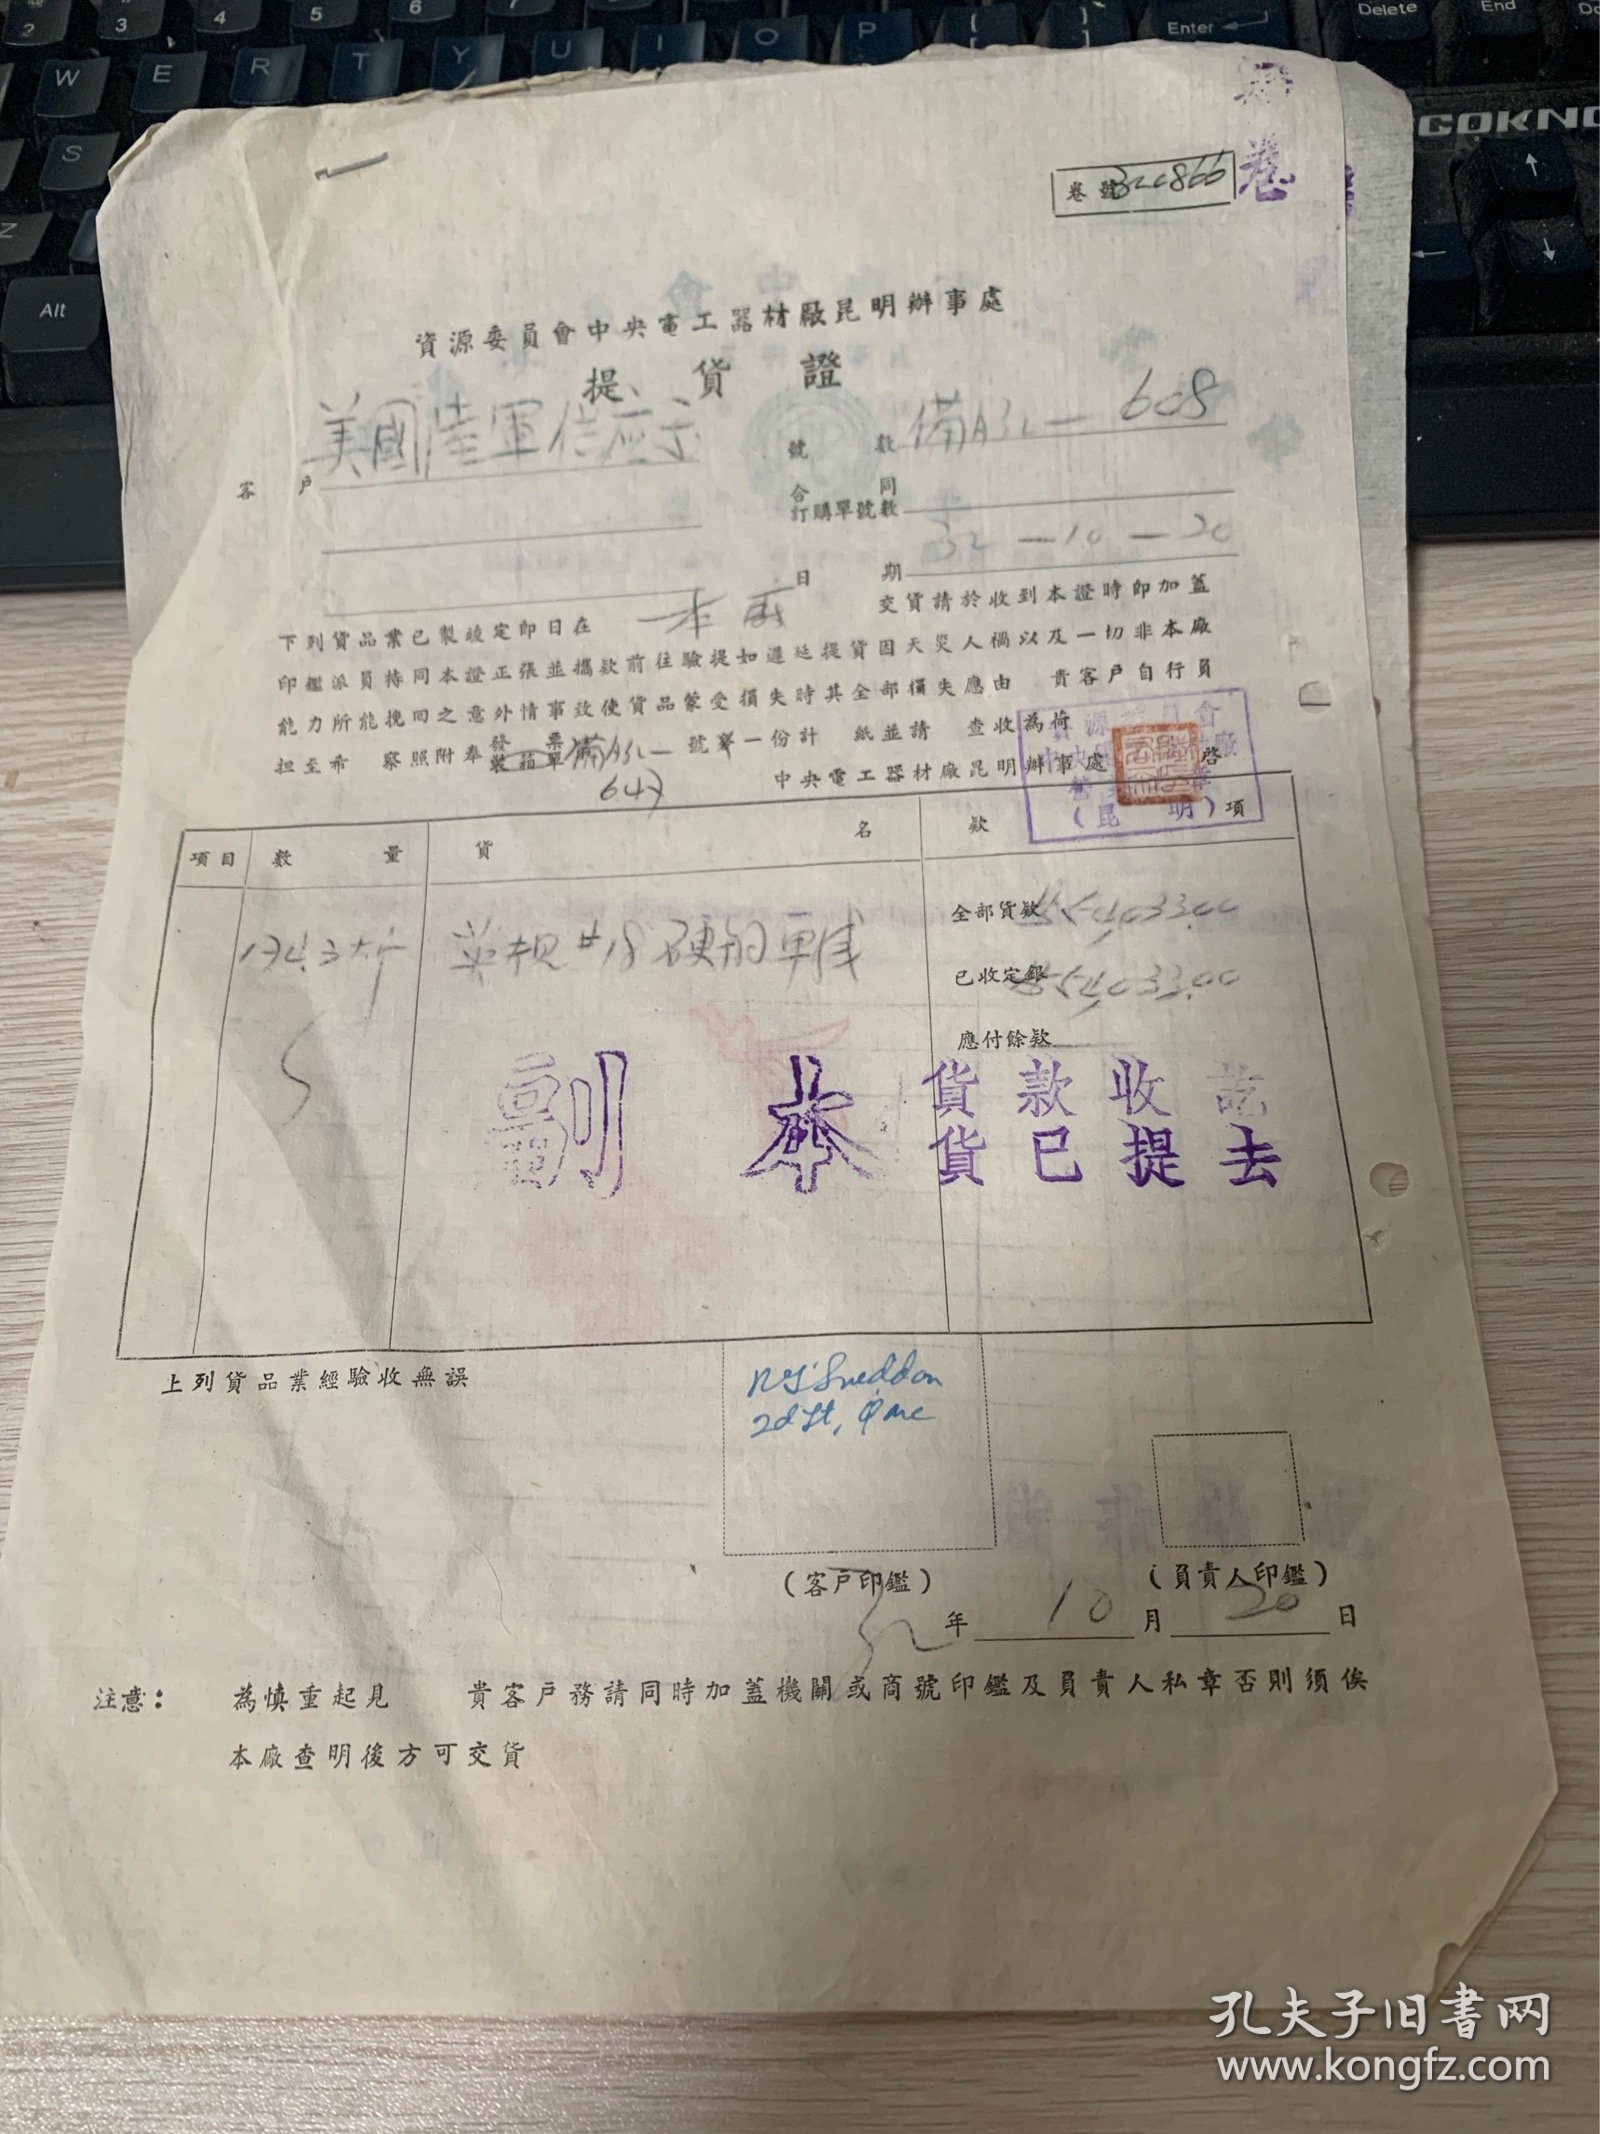 卷號
資源委員會中央電工器材廠昆明辦事處
提貨證
客戶 美國陸軍供应
號數 備A32—608
合同
訂購單號數
日期 32—10—20
下列貨品業已製竣定即日在 本廠 交貨請於收到本證時即加蓋
印鑑派員持同本證正張並攜款前往驗提如遲延提貨因天災人禍以及一切非本廠
能力所能挽回之意外情事致使貨品蒙受損失時其全部損失應由 貴客戶自行負
担至希 察照附奉 發票 裝箱單 備A32— 647 號 一份計 紙並請 查收為荷
中央電工器材廠昆明辦事處 啓
(昆明)
項目 數量 貨名 款項
英規#18硬銅單線
全部貨款
已收定銀
應付餘款
副本
貨款收訖
貨已提去
上列貨品業經驗收無誤
Sneddon
2d Lt, QMC
(客戶印鑑) (負責人印鑑)
32年10月20日
注意: 為慎重起見 貴客戶務請同時加蓋機關或商號印鑑及負責人私章否則須俟
本廠查明後方可交貨
孔夫子旧书网
www.kongfz.com
W E R T Y U I O P
Enter
Delete
End
S
Z
Alt
COKN